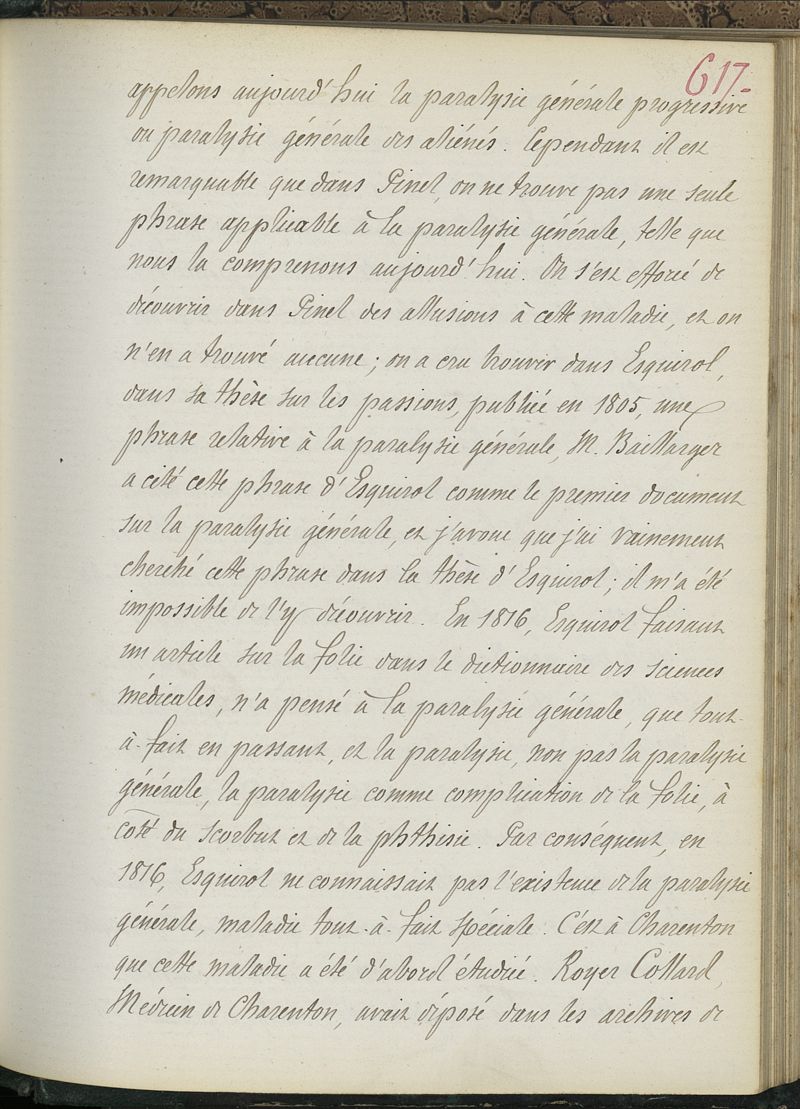 617.
appelons aujourd'hui la paralysie générale progressive
ou paralysie générale des aliénés. Cependant il est
remarquable que dans Pinel, on ne trouve pas une seule
phrase applicable à la paralysie générale, telle que
nous la comprenons aujourd'hui. On s'est efforcé de
découvrir dans Pinel des allusions à cette maladie, et on
n'en a trouvé aucune; on a cru trouver dans Esquirol,
dans sa thèse sur les passions, publiée en 1805, une
phrase relative à la paralysie générale, M. Baillarger
a cité cette phrase d'Esquirol comme le premier document
sur la paralysie générale, et j'avoue que j'ai vainement
cherché cette phrase dans la thèse d'Esquirol; il m'a été
impossible de l'y découvrir. En 1816, Esquirol faisant
un article sur la folie dans le dictionnaire des sciences
médicales, n'a pensé à la paralysie générale, que tout-
à-fait en passant, et la paralysie, non pas la paralysie
générale, la paralysie comme complication de la folie, à
coté du scorbut et de la phthisie. Par conséquent, en
1816, Esquirol ne connaissait pas l'existence de la paralysie
générale, maladie tout-à-fait spéciale. C'est à Charenton
que cette maladie a été d'abord étudiée. Royer Collard,
Médecin de Charenton, avait déposé dans les archives de